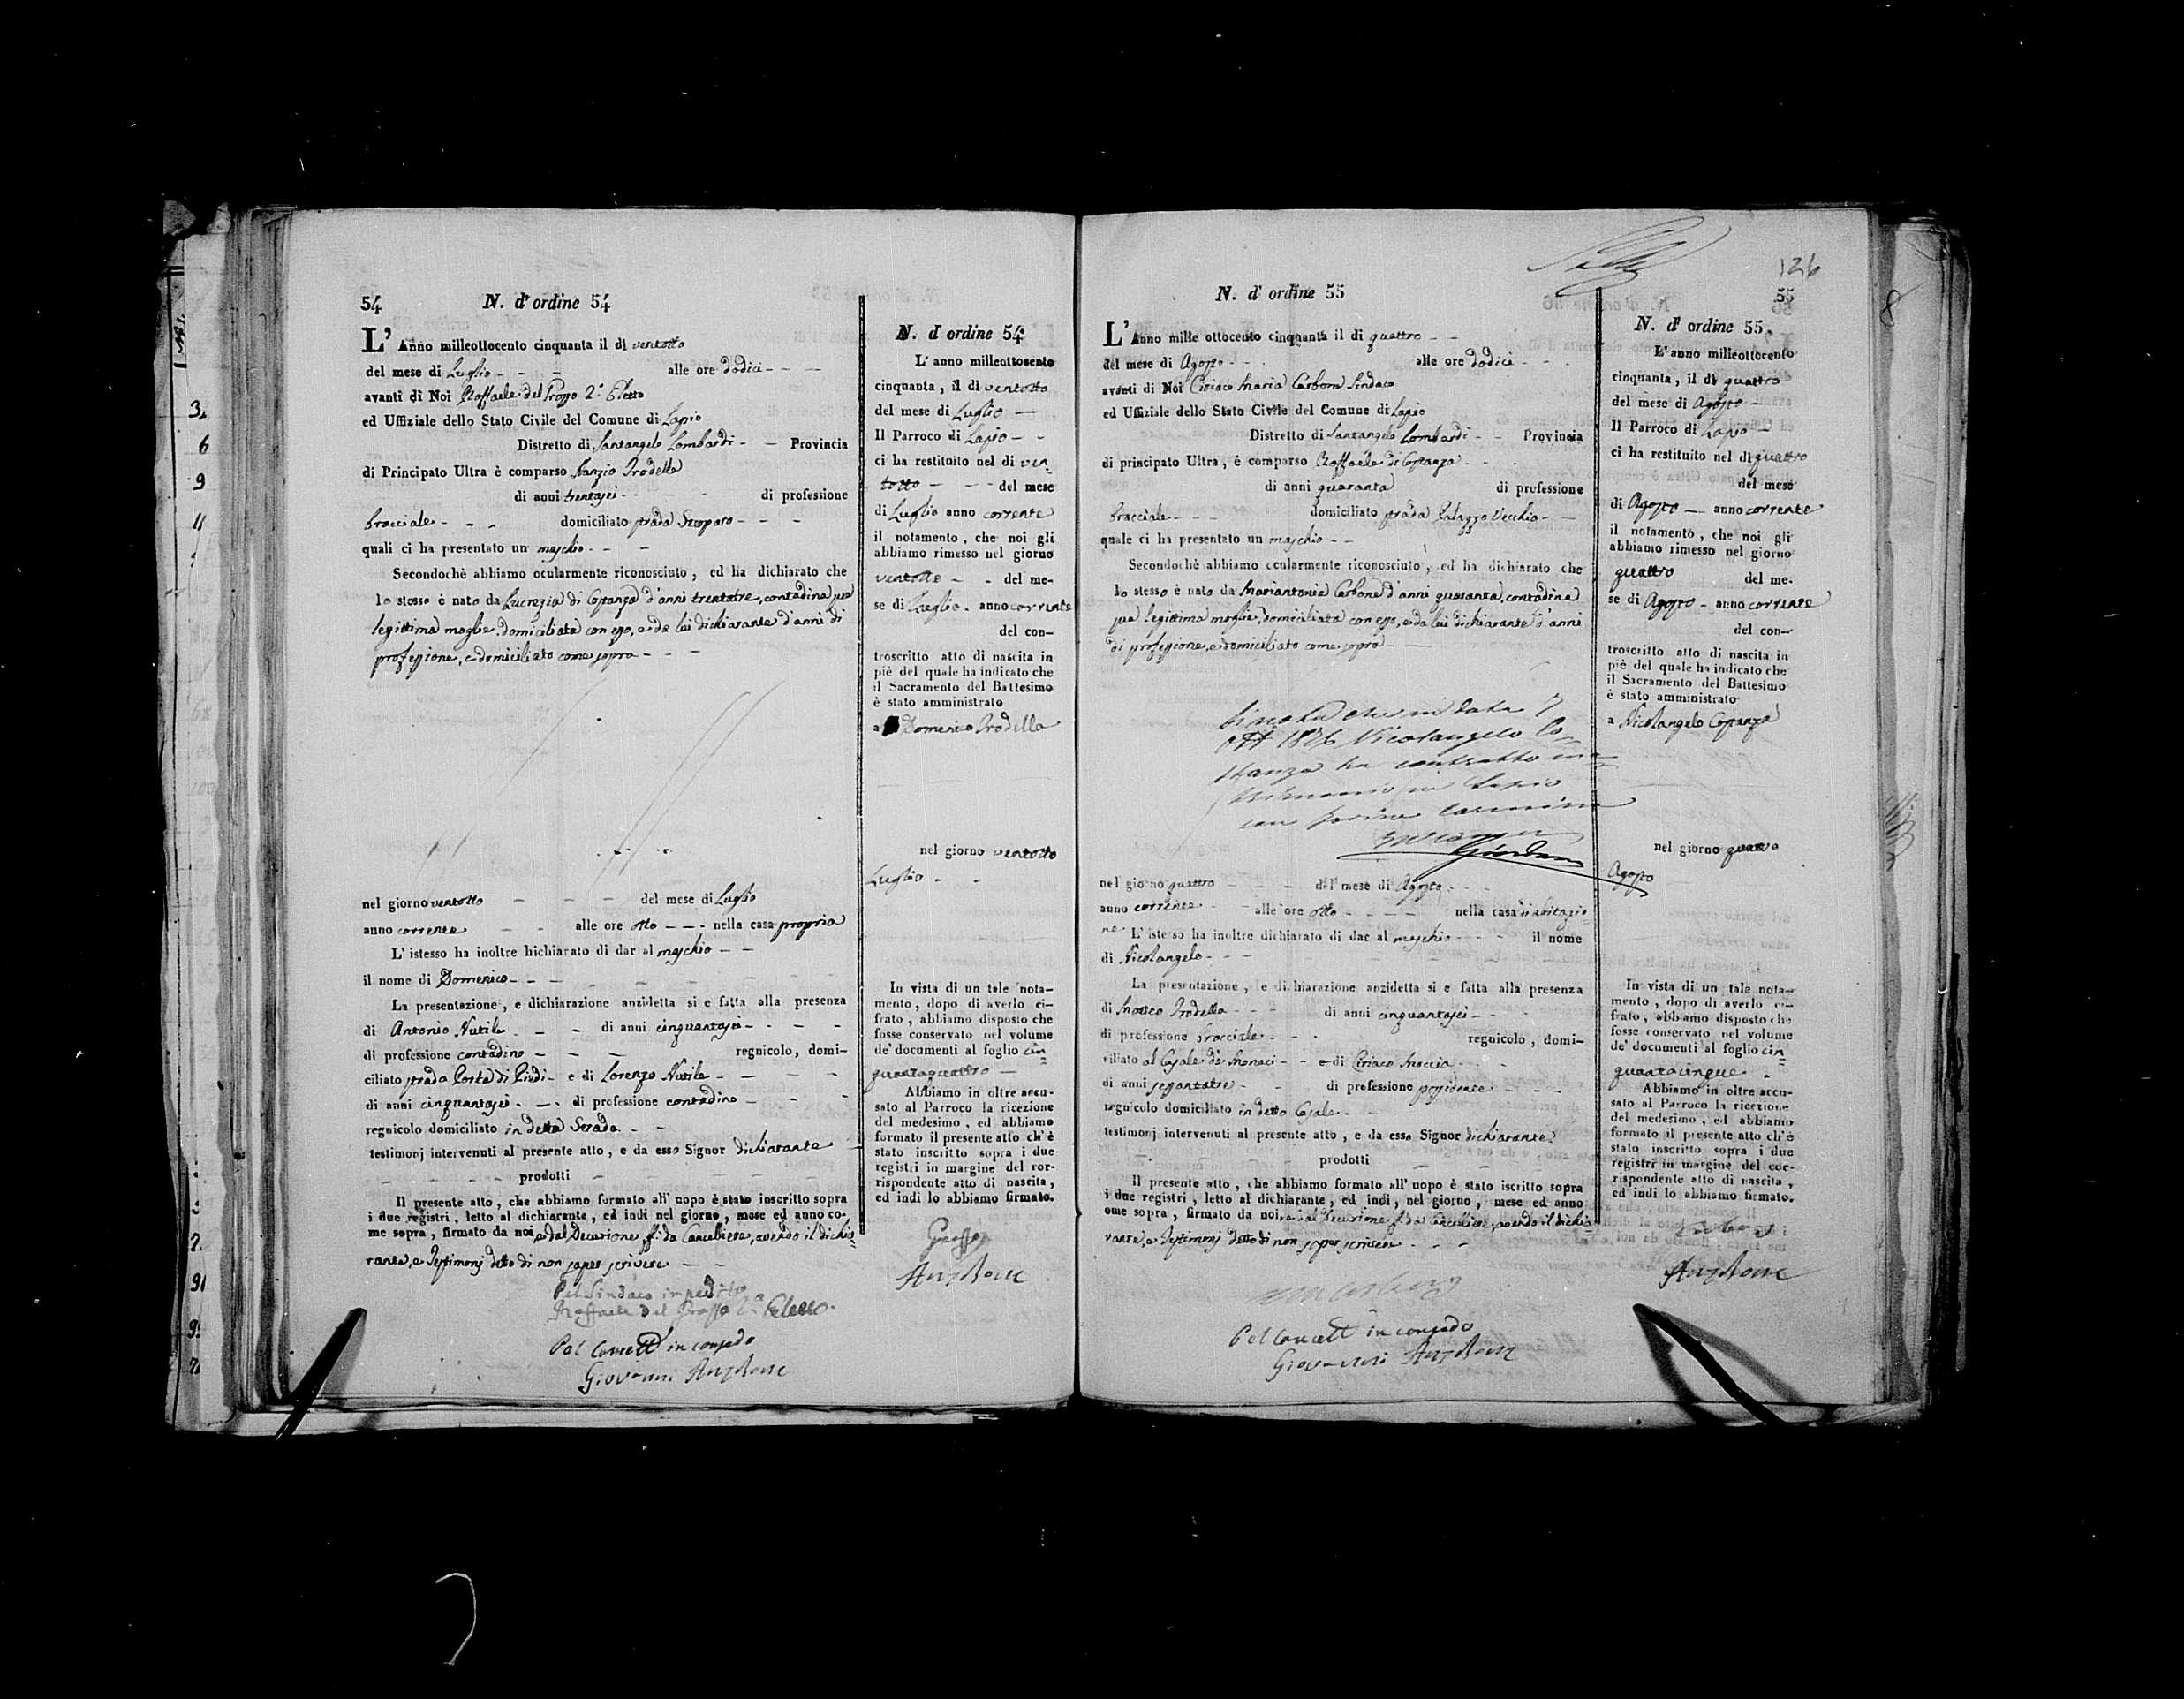 54
N. d'ordine 54
L'Anno milleottocento cinquanta il dì ventotto
del mese di Luglio - - - alle ore dodici - - -
avanti di Noi Raffaele del Grosso 2.° Eletto
ed Uffiziale dello Stato Civile del Comune di Lapio
Distretto di Santangelo Lombardi - - Provincia
di Principato Ultra è comparso Nunzio Trodella
di anni trentasei - - - di professione
bracciale - - - domiciliato strada Scoparo - - -
quali ci ha presentato un maschio - - -
Secondochè abbiamo ocularmente riconosciuto, ed ha dichiarato che
lo stesso è nato da Lucrezia di Costanza d'anni trentatre, contadina, sua
legittima moglie, domiciliata con esso, e da lui dichiarante d'anni di
professione, e domiciliato come sopra - - -
nel giorno ventotto - - - del mese di Luglio
anno corrente - - alle ore otto - - - nella casa propria
L'istesso ha inoltre hichiarato di dar al maschio - -
il nome di Domenico - - -
La presentazione, e dichiarazione anzidetta si e fatta alla presenza
di Antonio Nutile - - - di anni cinquantasei - - - -
di professione contadino - - - regnicolo, domi-
ciliato strada Porta di Piedi - e di Lorenzo Nutile - - - -
di anni cinquantasei - - - di professione contadino - - -
regnicolo domiciliato in detta Strada - -
testimonj intervenuti al presente atto, e da esso Signor dichiarante
prodotti
Il presente atto, che abbiamo formato all'uopo è stato inscritto sopra
i due registri, letto al dichiarante, ed indi nel giorno, mese ed anno co-
me sopra, firmato da noi, e dal Decurione ff. da Cancelliere, avendo il dichia=
rante, e Testimonj detto di non saper scrivere - -
Pel Sindaco impedito
Raffaele del Grosso 2.° Eletto
Pel Cancell. in congedo
Giovanni Anzalone
N. d ordine 54
L'anno milleottocento
cinquanta, il dì ventotto
del mese di Luglio -
Il Parroco di Lapio - -
ci ha restituito nel di ven=
totto - - - del mese
di Luglio anno corrente
il notamento, che noi gli
abbiamo rimesso nel giorno
ventotto - - del me-
se di Luglio - anno corrente
del con-
troscritto atto di nascita in
piè del quale ha indicato che
il Sacramento del Battesimo
è stato amministrato
a Domenico Trodella
nel giorno ventotto
Luglio - -
In vista di un tale nota-
mento, dopo di averlo ci-
frato, abbiamo disposto che
fosse conservato nel volume
de'documenti al foglio cin=
quantaquattro -
Abbiamo in oltre accu-
sato al Parroco la ricezione
del medesimo, ed abbiamo
formato il presente atto ch'è
stato inscritto sopra i due
registri in margine del cor-
rispondente atto di nascita,
ed indi lo abbiamo firmato.
Grosso
Anzalone
126
N. d' ordine 55
55
L'Anno mille ottocento cinquanta il di quattro - -
del mese di Agosto - - - alle ore dodici - - -
avanti di Noi Ciriaco Maria Carbone Sindaco
ed Uffiziale dello Stato Civile del Comune di Lapio
Distretto di Santangelo Lombardi - - Provincia
di principato Ultra, è comparso Raffaele di Costanza - -
di anni quaranta di professione
bracciale - - - domiciliato strada Palazzo Vecchio - -
quale ci ha presentato un maschio - -
Secondochè abbiamo ocularmente riconosciuto, ed ha dichiarato che
lo stesso è nato da Mariantonia Carbone d'anni quaranta, contadina
sua legittima moglie, domiciliata con esso, e da lui dichiarante d'anni
di professione, e domiciliato come sopra - -
Si nota che in data 7
1876 Nicolangelo Co-
stanza ha contratto ma-
trimonio in Lapio
con Carmina
Giordano
nel giorno quattro - - - del mese di Agosto - - -
anno corrente - - alle ore otto - - - - nella casa d'abitazio=
ne L'istesso ha inoltre dichiarato di dar al maschio - - - il nome
di Nicolangelo - - -
La presentazione, e dichiarazione anzidetta si e fatta alla presenza
di Matteo Trodella - - - di anni cinquantasei - - -
di professione bracciale - - - regnicolo, domi-
ciliato al Casale de' Monaci - - e di Ciriaco Maccia - - -
di anni sessantatre - - di prefessione possidente - - -
regnicolo domiciliato in detto Casale - -
testimonj intervenuti al presente atto, e da esso Signor dichiarante
prodotti
Il presente atto, che abbiamo formato all'uopo è stato iscritto sopra
i due registri, letto al dichiarante, ed indi, nel giorno, mese ed anno
ome sopra, firmato da noi, e dal Decurione ff. da Cancelliere, avendo il dichia=
rante, e Testimonj detto di non saper scrivere - - -
Pel Cancell. in congedo
Giovanni Anzalone
N. d' ordine 55.
L'anno milleottocento
cinquanta, il dì quattro
del mese di Agosto -
Il Parroco di Lapio -
ci ha restituito nel dì quattro
del mese
di Agosto - anno corrente
il notamento, che noi gli
abbiamo rimesso nel giorno
quattro del me-
se di Agosto - anno corrente
del con-
troscritto atto di nascita in
piè del quale ha indicato che
il Sacramento del Battesimo
è stato amministrato
a Nicolangelo Costanza
nel giorno quattro
Agosto
In vista di un tale nota-
mento, dopo di averlo ci-
frato, abbiamo disposto che
fosse conservato nel volume
de' documenti al foglio cin=
quantacinque -
Abbiamo in oltre accu-
sato al Parroco la ricezione
del medesimo, ed abbiamo
formato il presente atto ch'è
stato inscritto sopra i due
registri in margine del cor-
rispondente atto di nascita,
ed indi lo abbiamo firmato.
Anzalone